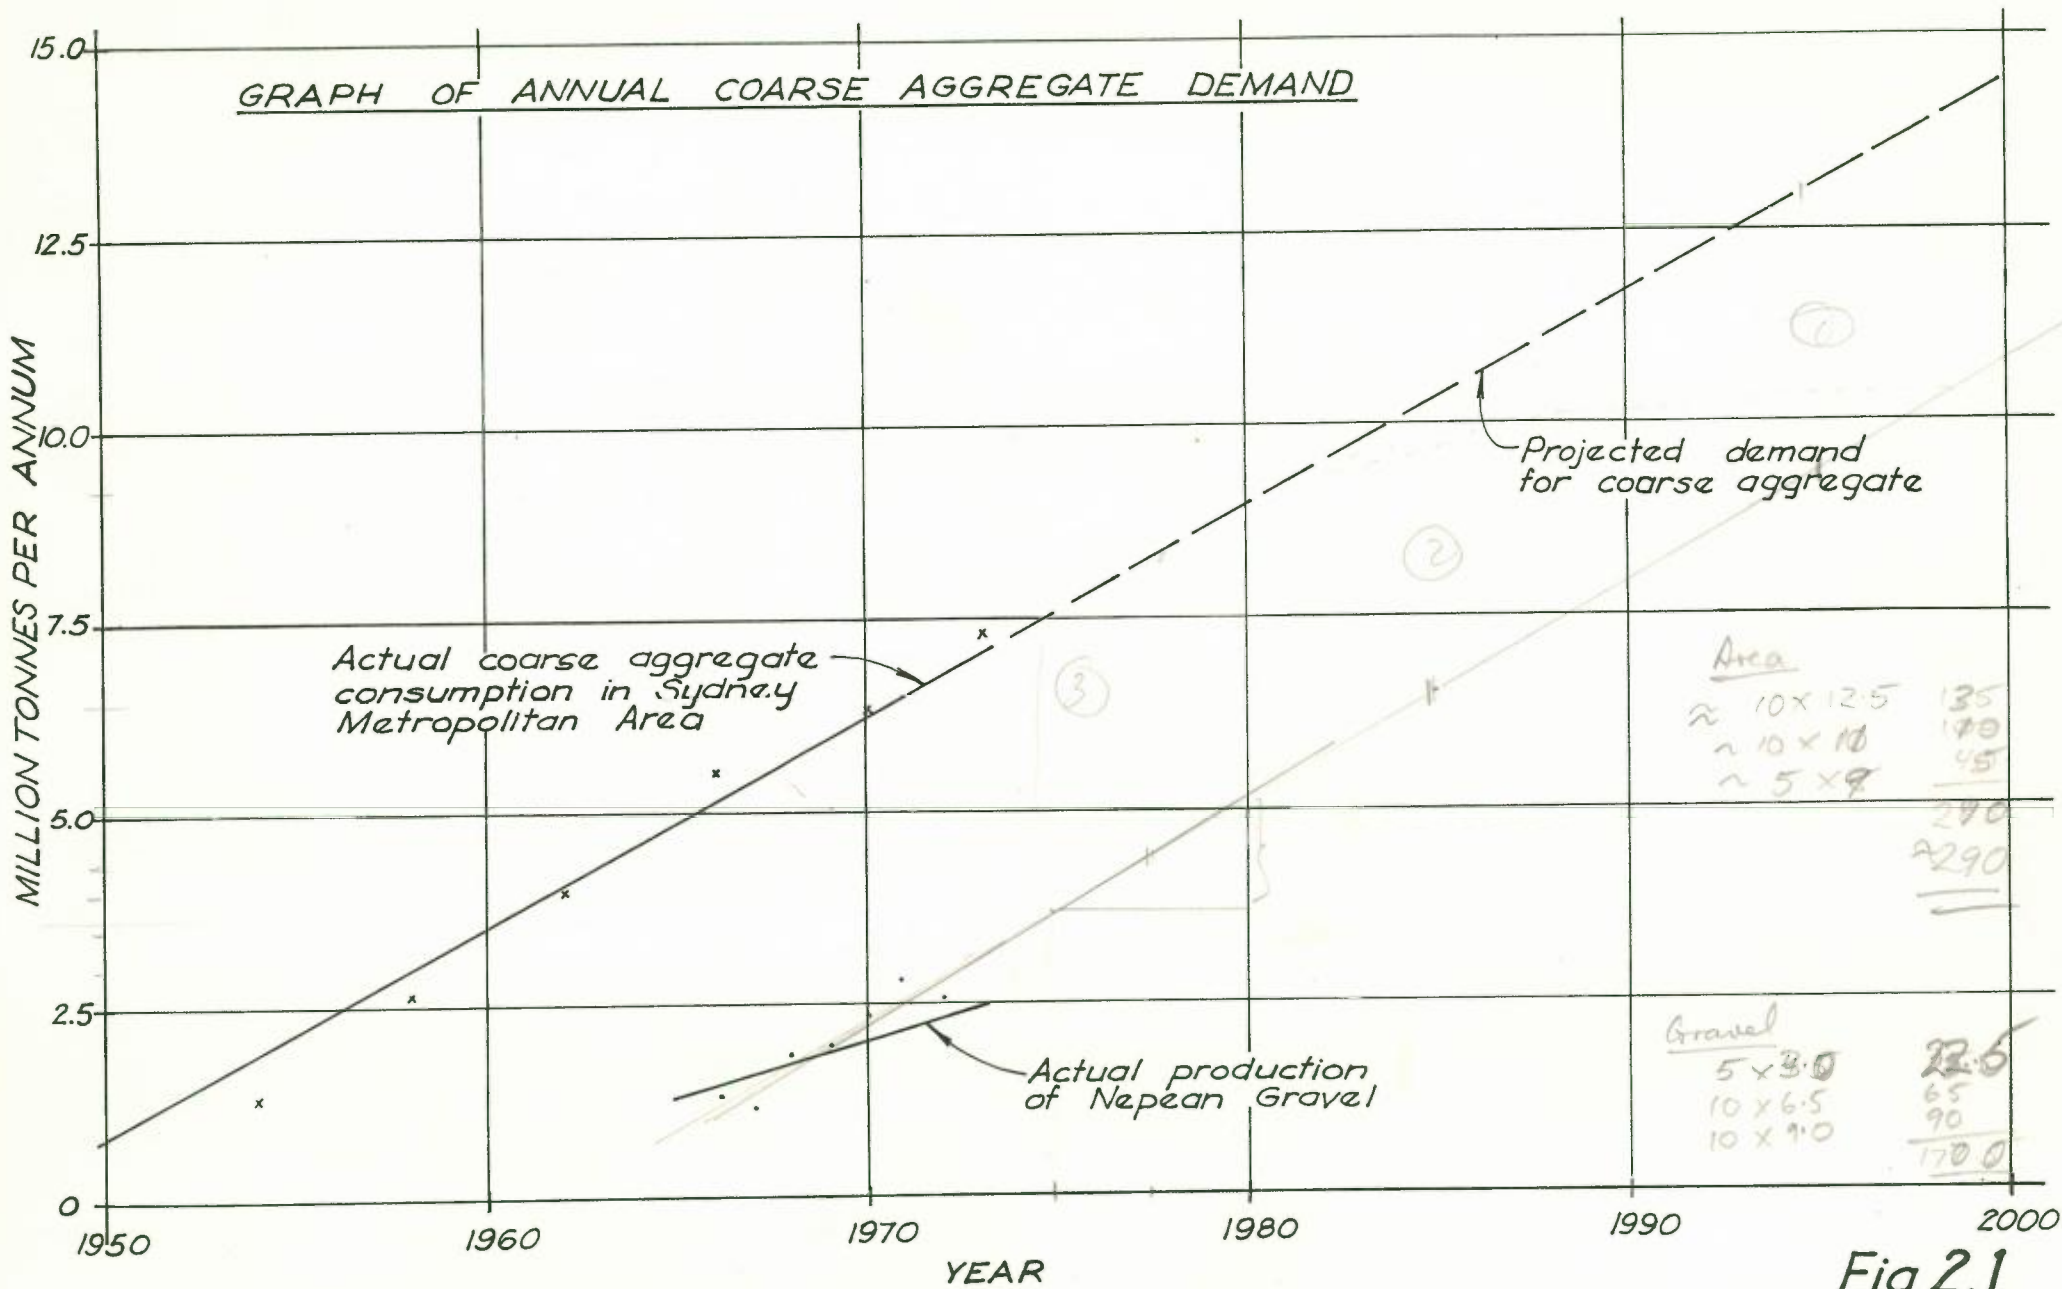 GRAPH OF ANNUAL COARSE AGGREGATE DEMAND
MILLION TONNES PER ANNUM
15.0
12.5
10.0
7.5
5.0
2.5
0
Projected demand
for coarse aggregate
Actual coarse aggregate
consumption in Sydney
Metropolitan Area
Actual production
of Nepean Gravel
2
3
Area
≈ 10 x 12.5 135
~ 10 x
~ 5 x 45
≈290
Gravel
5 x
10 x 6.5 65
10 x 9.0 90
1950
1960
1970
1980
1990
2000
YEAR
Fig 2.1